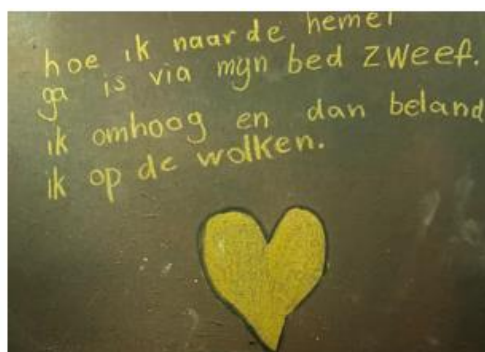 hoe ik naar de hemel
ga is via mijn bed zweef.
ik omhoog en dan beland
ik op de wolken.